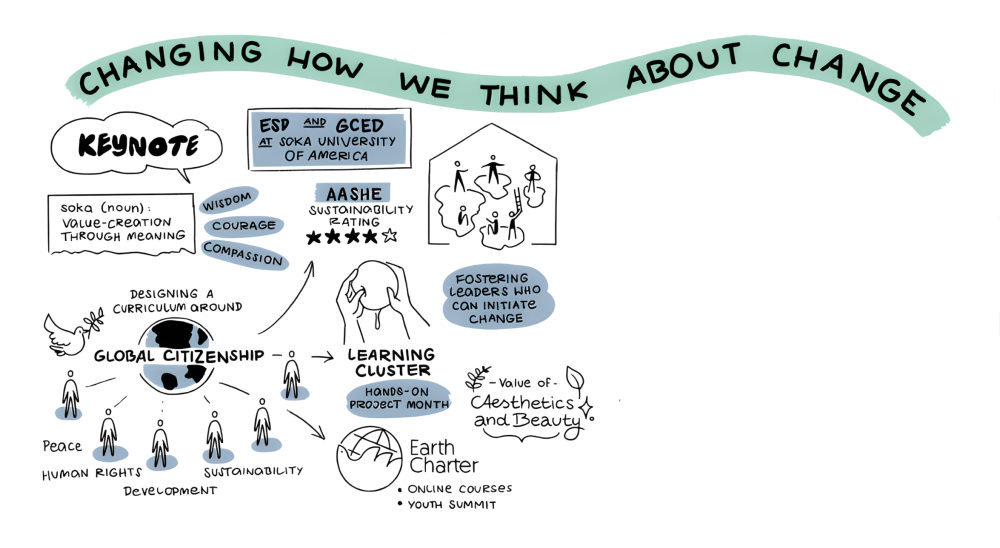 CHANGING HOW WE THINK ABOUT CHANGE
KEYNOTE
ESD AND GCED
AT SOKA UNIVERSITY
OF AMERICA
soka (noun):
VALUE-CREATION
THROUGH MEANING
WISDOM
COURAGE
COMPASSION
AASHE
SUSTAINABILITY
RATING
FOSTERING
LEADERS WHO
CAN INITIATE
CHANGE
DESIGNING A
CURRICULUM AROUND
GLOBAL CITIZENSHIP
LEARNING
CLUSTER
HANDS-ON
PROJECT MONTH
- Value of -
Aesthetics
and Beauty
Peace
HUMAN RIGHTS
DEVELOPMENT
SUSTAINABILITY
Earth
Charter
• ONLINE COURSES
• YOUTH SUMMIT